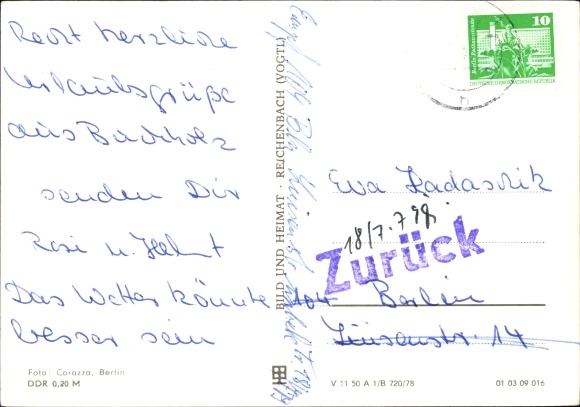 Recht herzliche
Urlaubsgrüße
aus Buchholz
senden Dir
Rosi u. Helmut
Das Wetter könnte
besser sein
Foto: Corazza, Berlin
DDR 0,20 M
BILD UND HEIMAT · REICHENBACH (VOGTL)
10
DEUTSCHE DEMOKRATISCHE REPUBLIK
Eva Kadaschik
18/7.79
Zurück
104 Berlin
Linienstr. 14
V 11 50 A 1/B 720/78
01 03 09 016